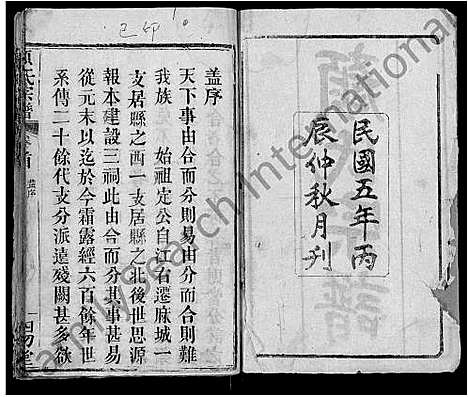 民國五年丙
辰仲秋月刊
己印
盖序
天下事由合而分則易由分而合則難
我族 始祖定公自江右遷麻城一
支居縣之西一支居縣之北後世思源
報本建設三祠此由合而分其事甚易
從元末以迄於今霜露經六百餘年世
系傳二十餘代支分派遠殘闕甚多欲
氏宗譜 卷首 盖序 一
FamilySearch International